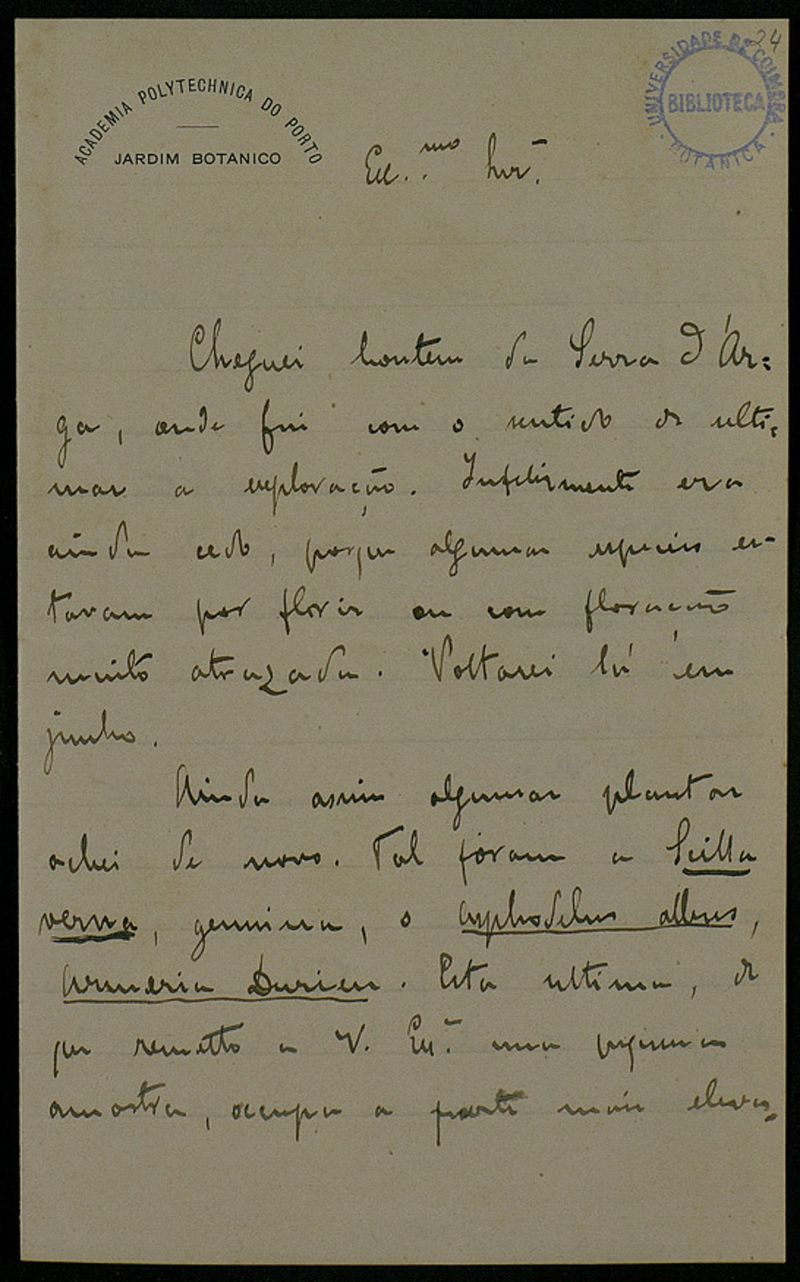 24
UNIVERSIDADE DE COIMBRA
BIBLIOTECA
BOTANICA
ACADEMIA POLYTECHNICA DO PORTO
JARDIM BOTANICO
Ex.mo Snr.
Cheguei hontem da Serra d'Ar-
ga, onde fui com o sentido de ulti-
mar a exploração. Infelizmente era
ainda cedo, porque algumas especies es-
tavam por florir ou com floração
muito atrazada. Voltarei lá em
junho.
Ainda assim algumas plantas
achei de novo. Tal foram a Scilla
verna, genuina, o Asphodelus albus,
Armeria Duriaei. Esta ultima, de
que remetto a V. Ex.a uma pequena
amostra, occupa a parte mais eleva-